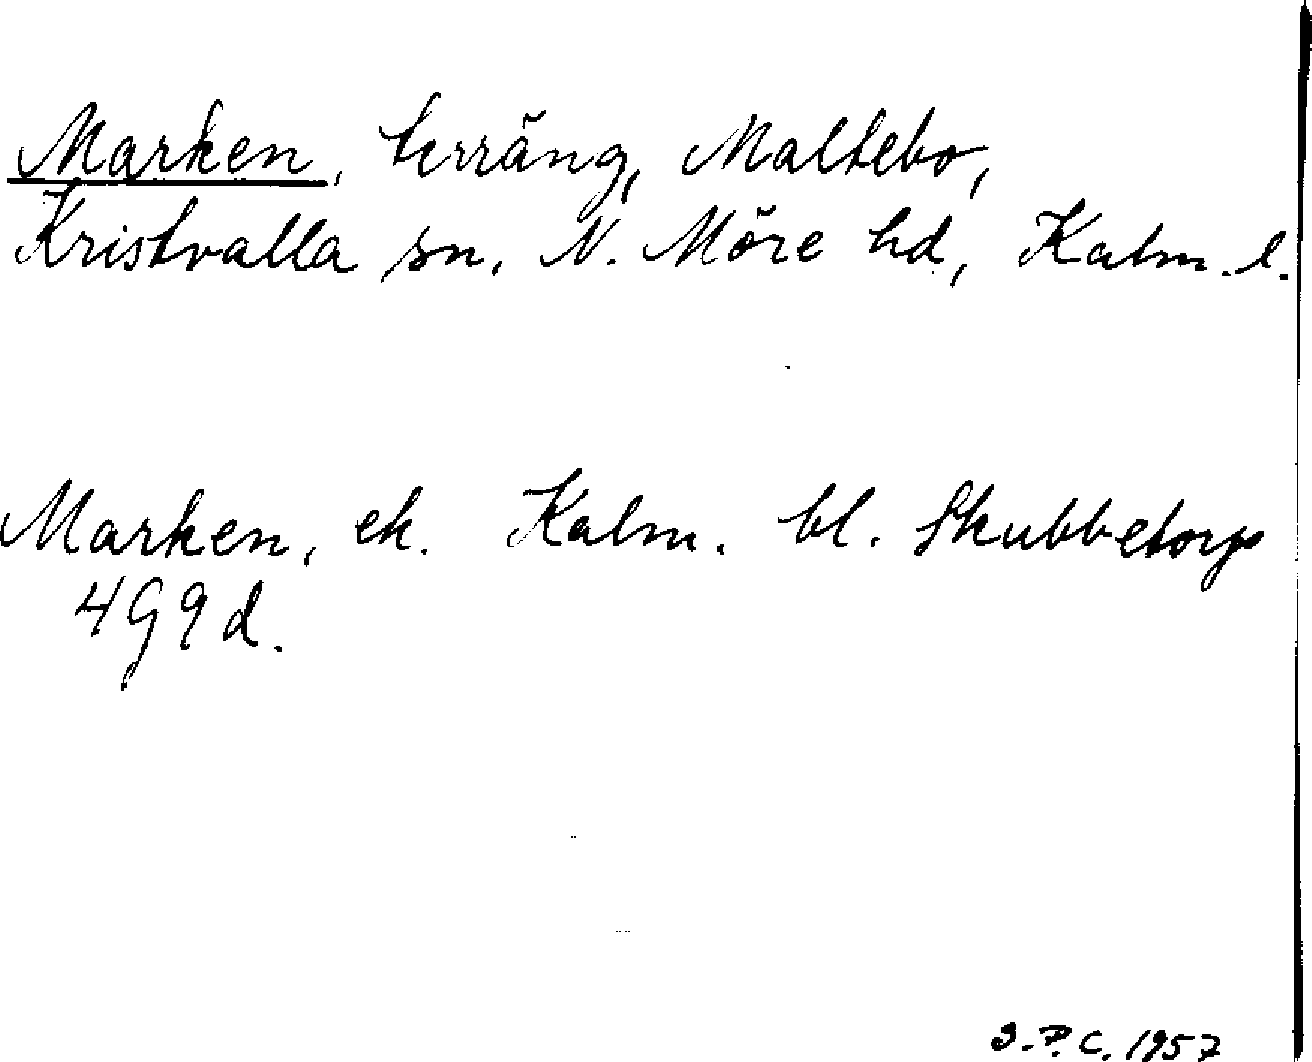 Marken, terräng, Maltebo,
Kristvalla sn. N. Möre hd, Kalm. l.
Marken, ek. Kalm. bl. Skubbetorp
4G9d.
S.P.C. 1957